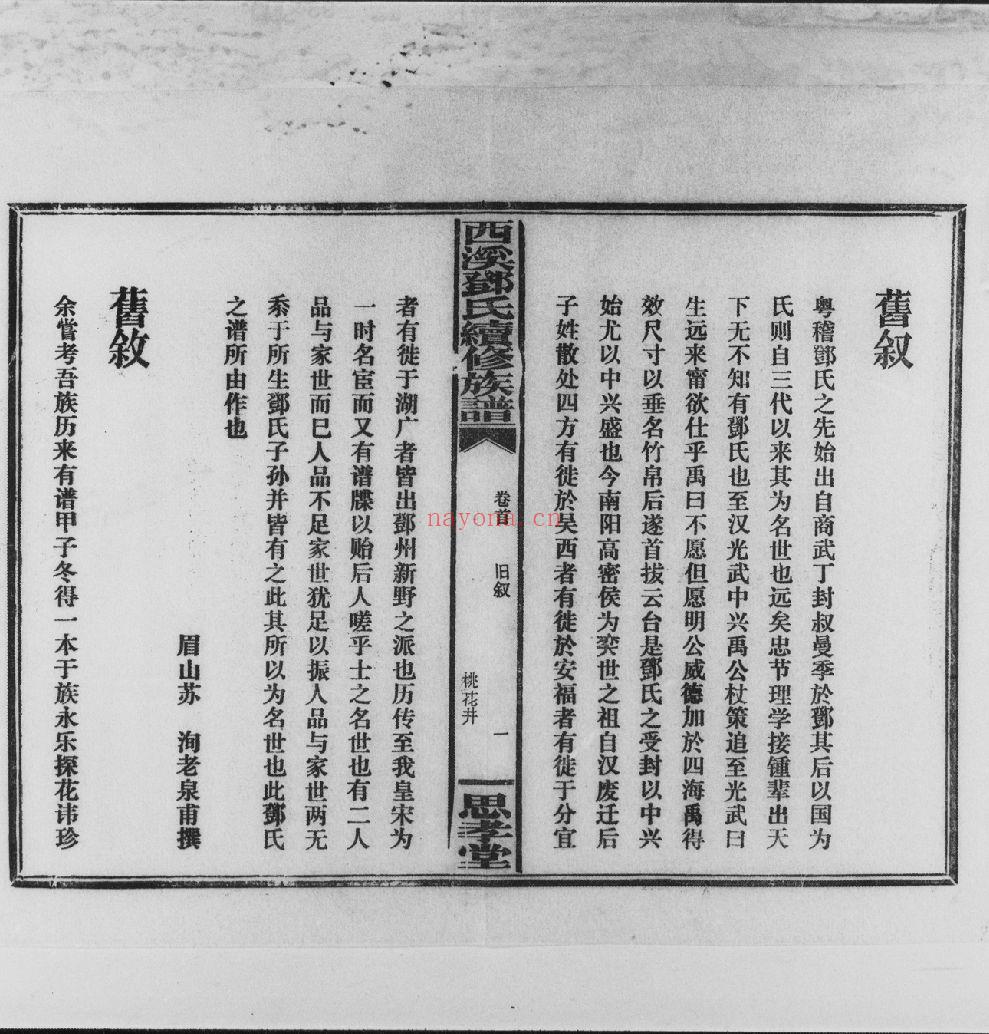 舊叙
粤稽鄧氏之先始出自商武丁封叔曼季於鄧其后以国为
氏则自三代以来其为名世也远矣忠节理学接锺辈出天
下无不知有鄧氏也至汉光武中兴禹公杖策追至光武曰
生远来甯欲仕乎禹曰不愿但愿明公威德加於四海禹得
效尺寸以垂名竹帛后遂首拔云台是鄧氏之受封以中兴
始尤以中兴盛也今南阳高密侯为奕世之祖自汉废迁后
子姓散处四方有徙於吴西者有徙於安福者有徙于分宜
西溪鄧氏續修族譜
卷首
旧叙
桃花井
一
思孝堂
者有徙于湖广者皆出鄧州新野之派也历传至我皇宋为
一时名宦而又有谱牒以贻后人嗟乎士之名世也有二人
品与家世而已人品不足家世犹足以振人品与家世两无
忝于所生鄧氏子孙并皆有之此其所以为名世也此鄧氏
之谱所由作也
眉山苏　洵老泉甫撰
舊敘
余嘗考吾族历来有谱甲子冬得一本于族永乐探花讳珍
nayona.cn